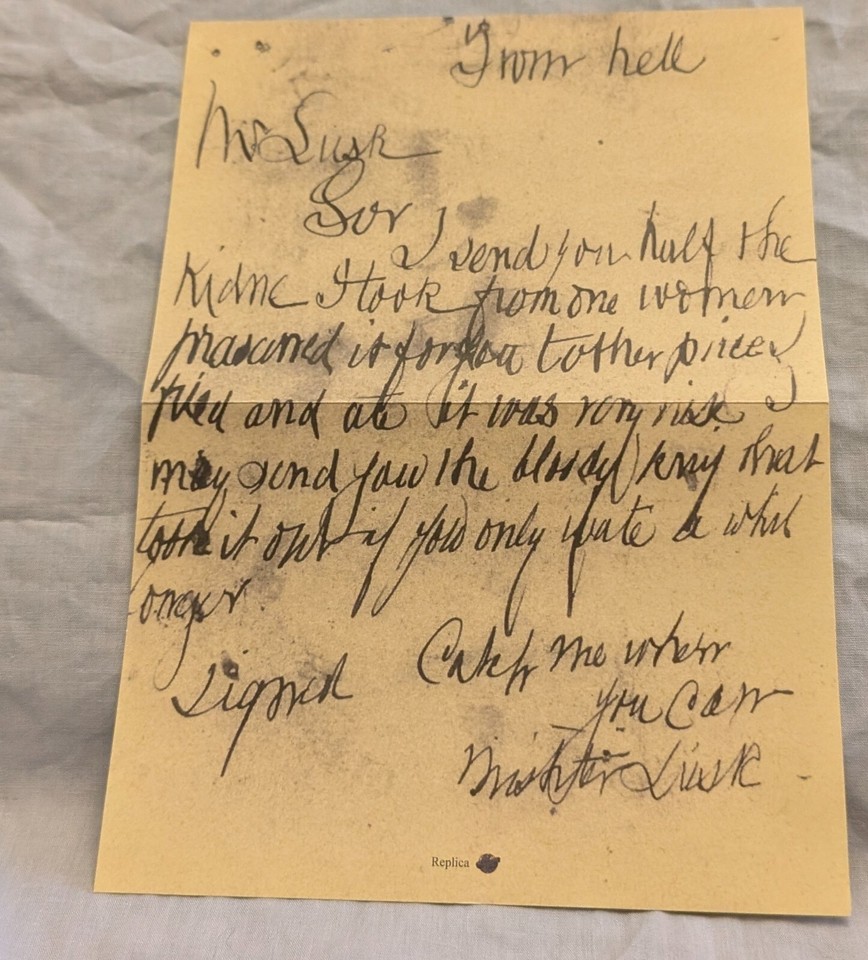 From hell
Mr Lusk
Sor
I send you half the
Kidne I took from one women
prasarved it for you tother piece I
fried and ate it was very nise I
may send you the bloody knif that
took it out if you only wate a whil
longer
signed
Catch me when
you can
Mishter Lusk
Replica